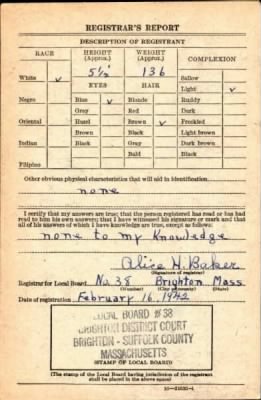 REGISTRAR'S REPORT
DESCRIPTION OF REGISTRANT
RACE HEIGHT (Approx.) WEIGHT (Approx.) COMPLEXION
5½' 136
White ✓ EYES HAIR Sallow
Light ✓
Negro Blue ✓ Blonde Ruddy
Gray Red Dark
Oriental Hazel Brown ✓ Freckled
Brown Black Light brown
Indian Black Gray Dark brown
Bald Black
Filipino
Other obvious physical characteristics that will aid in identification
none
I certify that my answers are true; that the person registered has read or has had
read to him his own answers; that I have witnessed his signature or mark and that
all of his answers of which I have knowledge are true, except as follows:
none to my Knowledge
Alice H. Baker
(Signature of registrar)
Registrar for Local Board No. 38 Brighton Mass
(Number) (City or county) (State)
Date of registration February 16, 1942
LOCAL BOARD #38
BRIGHTON DISTRICT COURT
BRIGHTON - SUFFOLK COUNTY
MASSACHUSETTS
(STAMP OF LOCAL BOARD)
(The stamp of the Local Board having jurisdiction of the registrant
shall be placed in the above space)